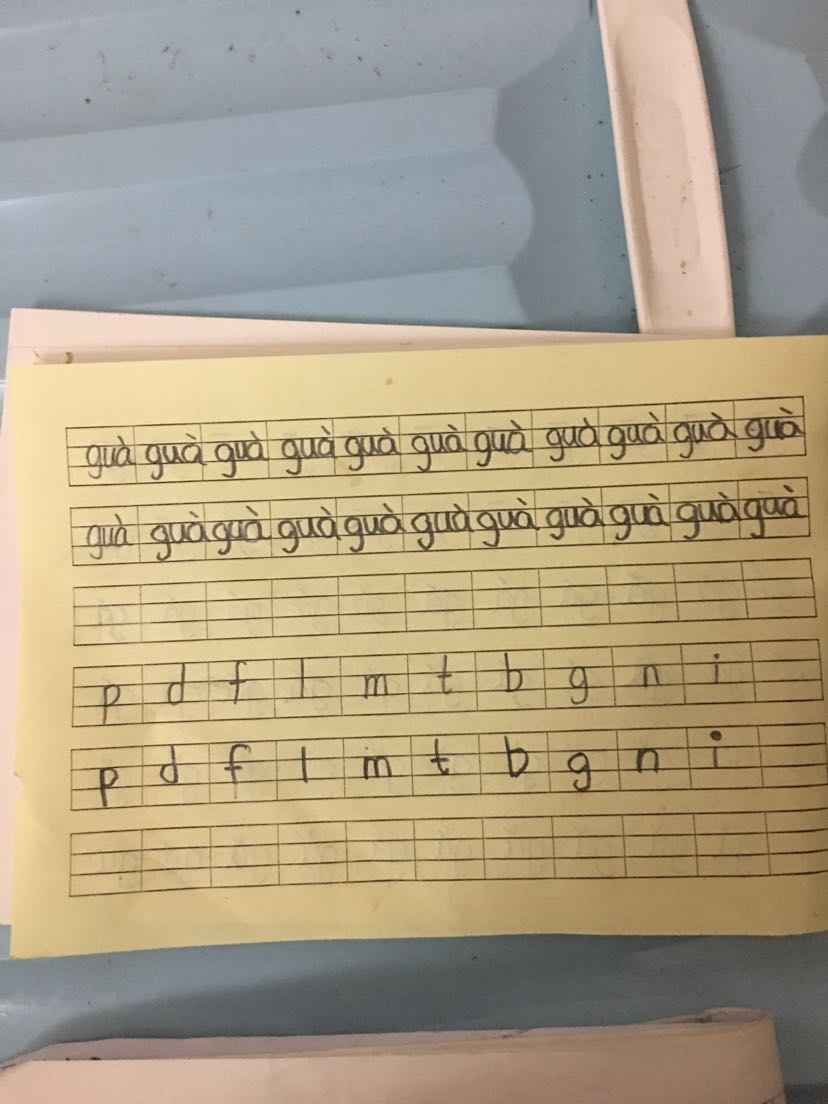 guà guà guà guà guà guà guà guà guà guà guà
guà guà guà guà guà guà guà guà guà guà guà
p d f l m t b g n i
p d f l m t b g n i